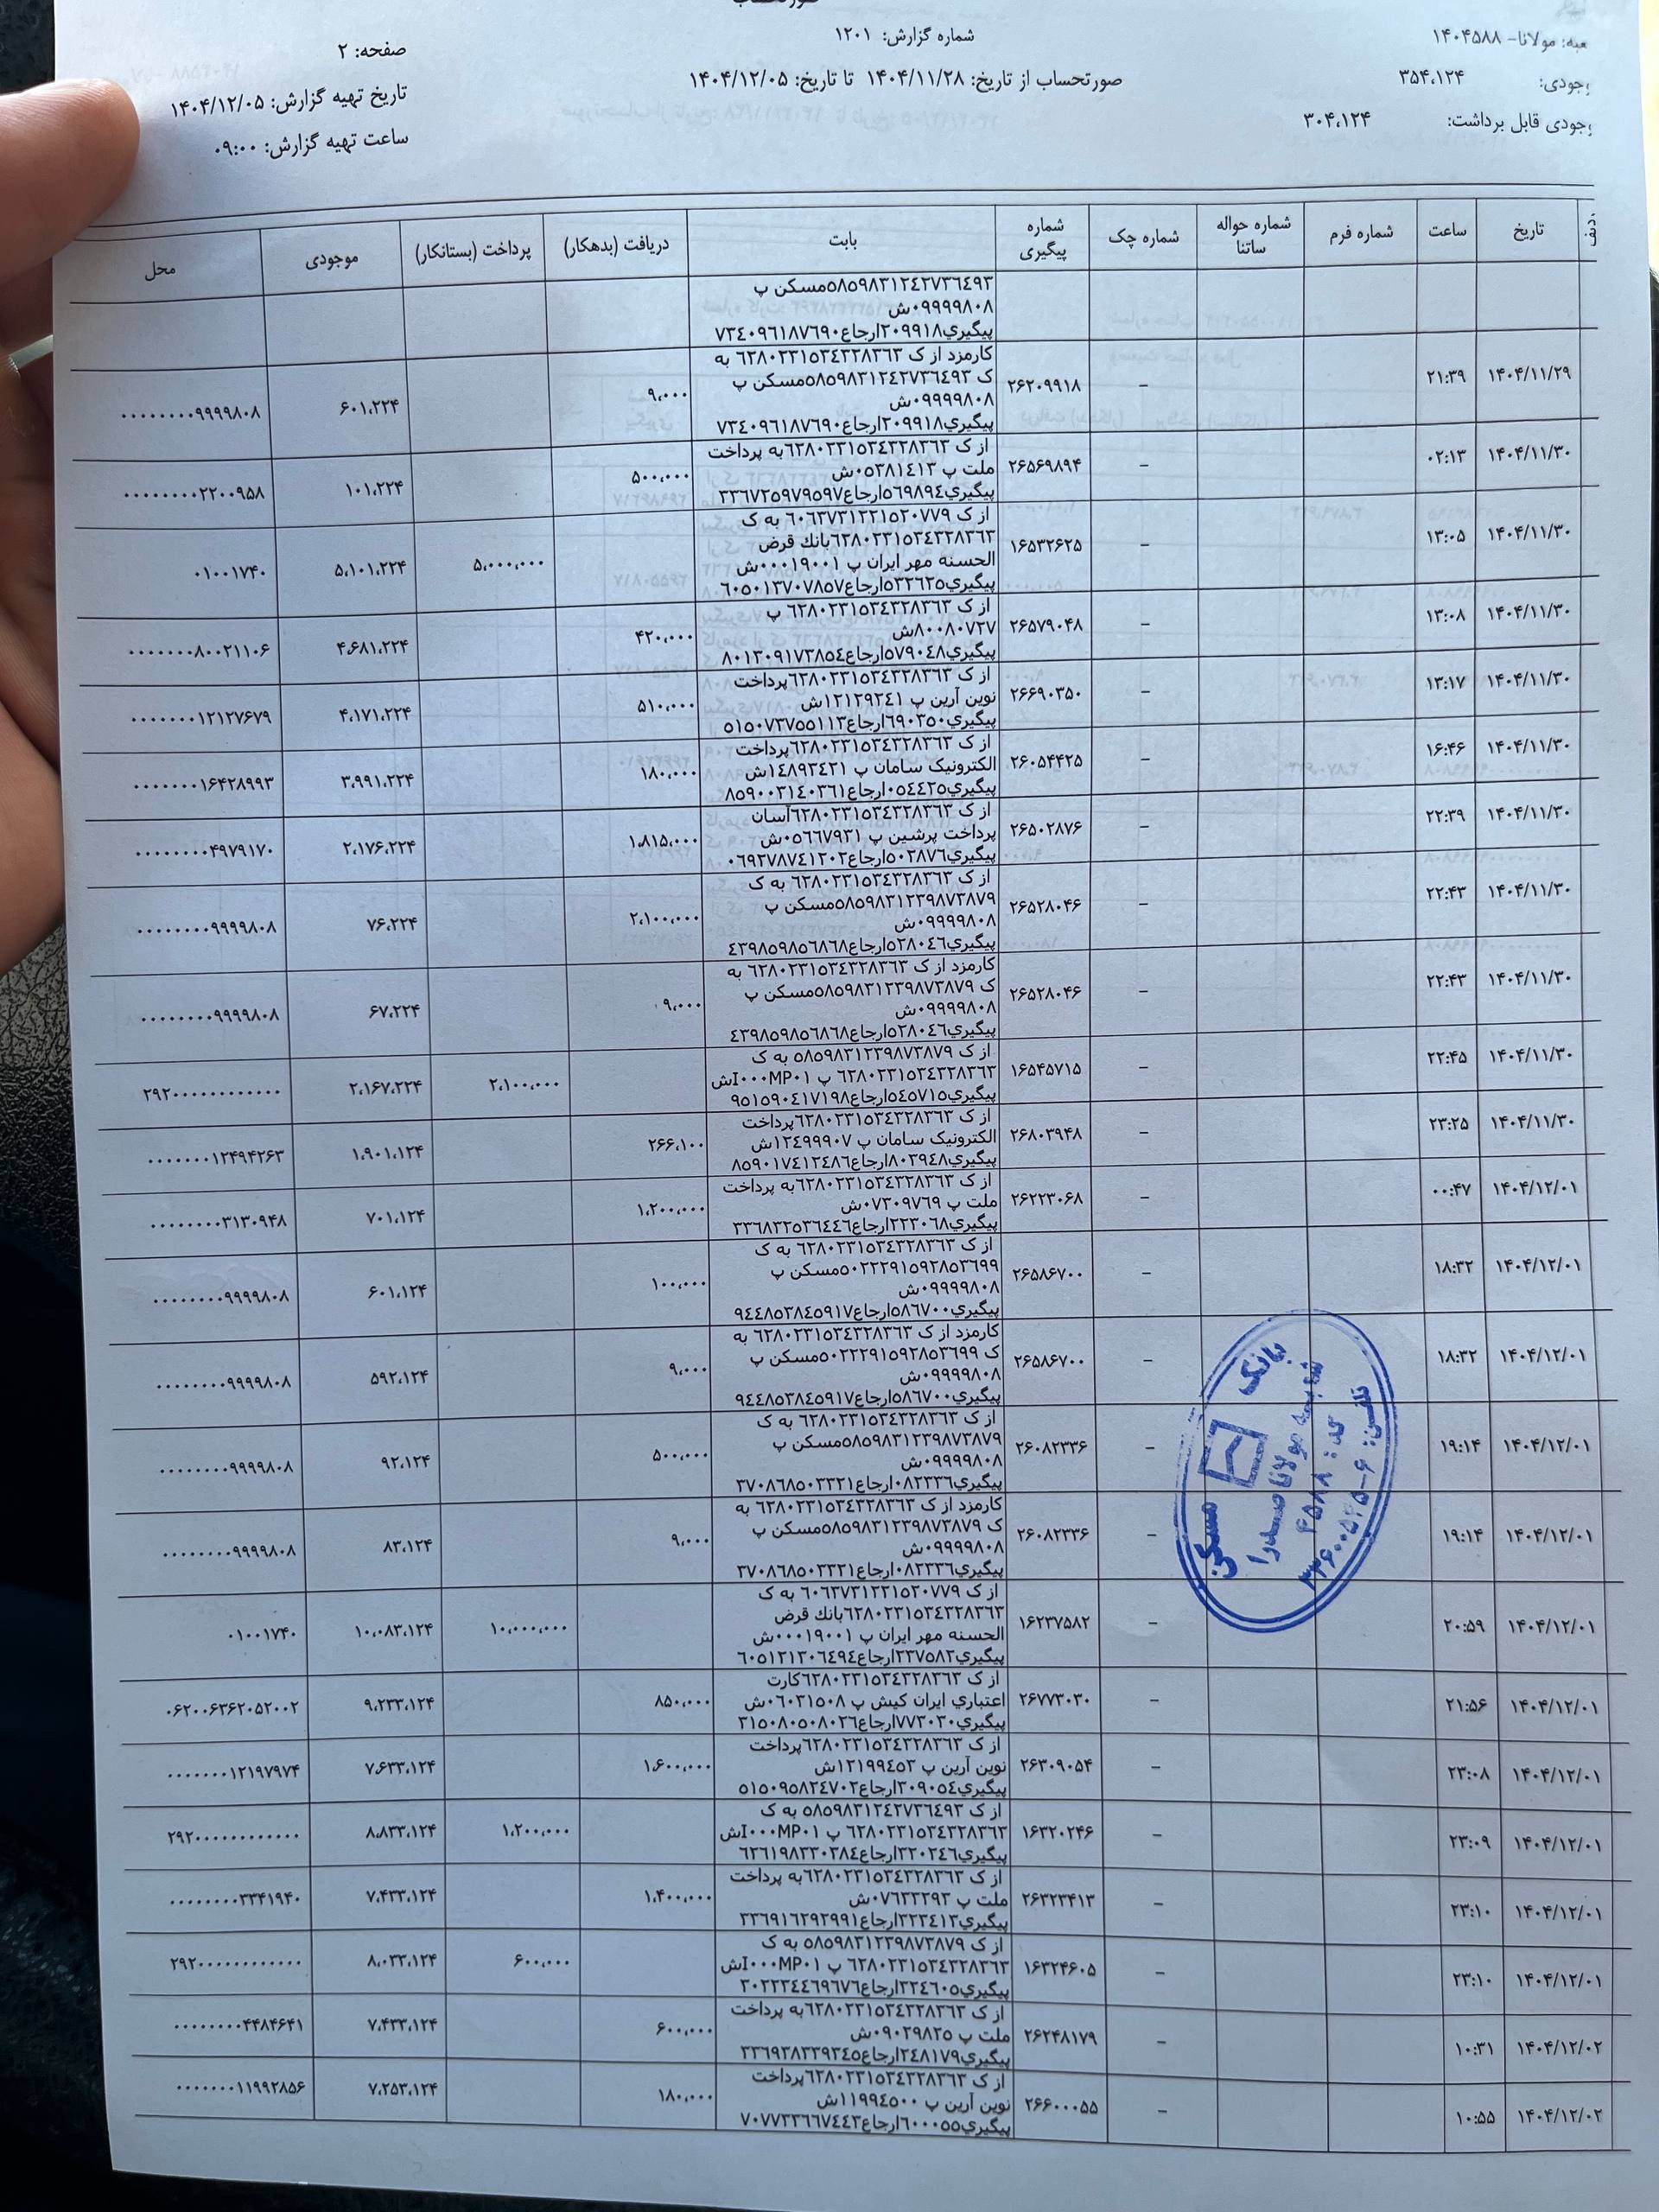 صورتحساب
عبه: مولانا- ۱۴۰۴۵۸۸
شماره گزارش: ۱۲۰۱
صفحه: ۲
وجودی: ۳۵۴,۱۲۴
صورتحساب از تاریخ: ۱۴۰۴/۱۱/۲۸ تا تاریخ: ۱۴۰۴/۱۲/۰۵
تاریخ تهیه گزارش: ۱۴۰۴/۱۲/۰۵
وجودی قابل برداشت: ۳۰۴,۱۲۴
ساعت تهیه گزارش: ۰۹:۰۰
ردیف تاریخ ساعت شماره فرم شماره حواله ساتنا شماره چک شماره پیگیری بابت دریافت (بدهکار) پرداخت (بستانکار) موجودی محل
۵۸۵۹۸۳۱۲۴۲۷۳۶۴۹۳مسکن پ
۰۹۹۹۹۸۰۸ش
پیگیري۲۰۹۹۱۸ارجاع۷۳۴۰۹۶۱۸۷۶۹۰
۱۴۰۴/۱۱/۲۹ ۲۱:۳۹ – ۲۶۲۰۹۹۱۸ کارمزد از ک ۶۲۸۰۲۳۱۵۳۴۲۲۸۳۶۳ به
ک ۵۸۵۹۸۳۱۲۴۲۷۳۶۴۹۳مسکن پ
۰۹۹۹۹۸۰۸ش
پیگیري۲۰۹۹۱۸ارجاع۷۳۴۰۹۶۱۸۷۶۹۰ ۹,۰۰۰ ۶۰۱,۲۲۴ ۰۰۰۰۰۰۰۰۹۹۹۹۸۰۸
۱۴۰۴/۱۱/۳۰ ۰۲:۱۳ – ۲۶۵۶۹۸۹۴ از ک ۶۲۸۰۲۳۱۵۳۴۲۲۸۳۶۳به پرداخت
ملت پ ۰۵۳۸۱۴۱۳ش
پیگیري۵۶۹۸۹۴ارجاع۳۳۶۷۲۵۹۷۹۵۹۷ ۵۰۰,۰۰۰ ۱۰۱,۲۲۴ ۰۰۰۰۰۰۰۰۲۲۰۰۹۵۸
۱۴۰۴/۱۱/۳۰ ۱۳:۰۵ – ۱۶۵۳۲۶۲۵ از ک ۶۰۶۳۷۳۱۲۲۱۵۲۰۷۷۹ به ک
۶۲۸۰۲۳۱۵۳۴۲۲۸۳۶۳بانك قرض
الحسنه مهر ایران پ ۰۰۰۱۹۰۰۱ش
پیگیري۵۳۲۶۲۵ارجاع۶۰۵۰۱۳۷۰۷۸۵۷ ۵,۰۰۰,۰۰۰ ۵,۱۰۱,۲۲۴ ۰۱۰۰۱۷۴۰
۱۴۰۴/۱۱/۳۰ ۱۳:۰۸ – ۲۶۵۷۹۰۴۸ از ک ۶۲۸۰۲۳۱۵۳۴۲۲۸۳۶۳ پ
۸۰۰۸۰۷۲۷ش
پیگیري۵۷۹۰۴۸ارجاع۸۰۱۳۰۹۱۷۳۸۵۴ ۴۲۰,۰۰۰ ۴,۶۸۱,۲۲۴ ۰۰۰۰۰۰۰۸۰۰۲۱۱۰۶
۱۴۰۴/۱۱/۳۰ ۱۳:۱۷ – ۲۶۶۹۰۳۵۰ از ک ۶۲۸۰۲۳۱۵۳۴۲۲۸۳۶۳پرداخت
نوین آرین پ ۱۲۱۲۹۲۴۱ش
پیگیري۶۹۰۳۵۰ارجاع۵۱۵۰۷۳۷۵۵۱۱۳ ۵۱۰,۰۰۰ ۴,۱۷۱,۲۲۴ ۰۰۰۰۰۰۰۱۲۱۲۷۶۷۹
۱۴۰۴/۱۱/۳۰ ۱۶:۴۶ – ۲۶۰۵۴۴۲۵ از ک ۶۲۸۰۲۳۱۵۳۴۲۲۸۳۶۳پرداخت
الکترونیک سامان پ ۱۴۸۹۳۴۲۱ش
پیگیري۰۵۴۴۲۵ارجاع۸۵۹۰۰۳۱۴۰۳۶۱ ۱۸۰,۰۰۰ ۳,۹۹۱,۲۲۴ ۰۰۰۰۰۰۰۱۶۴۲۸۹۹۳
۱۴۰۴/۱۱/۳۰ ۲۲:۳۹ – ۲۶۵۰۲۸۷۶ از ک ۶۲۸۰۲۳۱۵۳۴۲۲۸۳۶۳آسان
پرداخت پرشین پ ۰۵۶۶۷۹۳۱ش
پیگیري۵۰۲۸۷۶ارجاع۰۶۹۲۷۸۷۴۱۲۰۲ ۱,۸۱۵,۰۰۰ ۲,۱۷۶,۲۲۴ ۰۰۰۰۰۰۰۰۴۹۷۹۱۷۰
۱۴۰۴/۱۱/۳۰ ۲۲:۴۳ – ۲۶۵۲۸۰۴۶ از ک ۶۲۸۰۲۳۱۵۳۴۲۲۸۳۶۳ به ک
۵۸۵۹۸۳۱۲۳۹۸۷۳۸۷۹مسکن پ
۰۹۹۹۹۸۰۸ش
پیگیري۵۲۸۰۴۶ارجاع۴۳۹۸۵۹۸۵۶۸۶۸ ۲,۱۰۰,۰۰۰ ۷۶,۲۲۴ ۰۰۰۰۰۰۰۰۹۹۹۹۸۰۸
۱۴۰۴/۱۱/۳۰ ۲۲:۴۳ – ۲۶۵۲۸۰۴۶ کارمزد از ک ۶۲۸۰۲۳۱۵۳۴۲۲۸۳۶۳ به
ک ۵۸۵۹۸۳۱۲۳۹۸۷۳۸۷۹مسکن پ
۰۹۹۹۹۸۰۸ش
پیگیري۵۲۸۰۴۶ارجاع۴۳۹۸۵۹۸۵۶۸۶۸ ۹,۰۰۰ ۶۷,۲۲۴ ۰۰۰۰۰۰۰۰۹۹۹۹۸۰۸
۱۴۰۴/۱۱/۳۰ ۲۲:۴۵ – ۱۶۵۴۵۷۱۵ از ک ۵۸۵۹۸۳۱۲۳۹۸۷۳۸۷۹ به ک
۶۲۸۰۲۳۱۵۳۴۲۲۸۳۶۳ پ I۰۰۰MP۰۱ش
پیگیري۵۴۵۷۱۵ارجاع۹۵۱۵۹۰۴۱۷۱۹۸ ۲,۱۰۰,۰۰۰ ۲,۱۶۷,۲۲۴ ۲۹۲۰۰۰۰۰۰۰۰۰۰۰۰
۱۴۰۴/۱۱/۳۰ ۲۳:۲۵ – ۲۶۸۰۳۹۴۸ از ک ۶۲۸۰۲۳۱۵۳۴۲۲۸۳۶۳پرداخت
الکترونیک سامان پ ۱۲۴۹۹۹۰۷ش
پیگیري۸۰۳۹۴۸ارجاع۸۵۹۰۱۷۴۱۲۴۸۶ ۲۶۶,۱۰۰ ۱,۹۰۱,۱۲۴ ۰۰۰۰۰۰۰۱۲۴۹۴۲۶۳
۱۴۰۴/۱۲/۰۱ ۰۰:۴۷ – ۲۶۲۲۳۰۶۸ از ک ۶۲۸۰۲۳۱۵۳۴۲۲۸۳۶۳به پرداخت
ملت پ ۰۷۳۰۹۷۶۹ش
پیگیري۲۲۳۰۶۸ارجاع۳۳۶۸۳۲۵۳۶۴۴۶ ۱,۲۰۰,۰۰۰ ۷۰۱,۱۲۴ ۰۰۰۰۰۰۰۰۳۱۳۰۹۴۸
۱۴۰۴/۱۲/۰۱ ۱۸:۳۲ – ۲۶۵۸۶۷۰۰ از ک ۶۲۸۰۲۳۱۵۳۴۲۲۸۳۶۳ به ک
۵۰۲۲۲۹۱۵۹۲۸۵۳۶۹۹مسکن پ
۰۹۹۹۹۸۰۸ش
پیگیري۵۸۶۷۰۰ارجاع۹۴۴۸۵۳۸۴۵۹۱۷ ۱۰۰,۰۰۰ ۶۰۱,۱۲۴ ۰۰۰۰۰۰۰۰۹۹۹۹۸۰۸
۱۴۰۴/۱۲/۰۱ ۱۸:۳۲ – ۲۶۵۸۶۷۰۰ کارمزد از ک ۶۲۸۰۲۳۱۵۳۴۲۲۸۳۶۳ به
ک ۵۰۲۲۲۹۱۵۹۲۸۵۳۶۹۹مسکن پ
۰۹۹۹۹۸۰۸ش
پیگیري۵۸۶۷۰۰ارجاع۹۴۴۸۵۳۸۴۵۹۱۷ ۹,۰۰۰ ۵۹۲,۱۲۴ ۰۰۰۰۰۰۰۰۹۹۹۹۸۰۸
۱۴۰۴/۱۲/۰۱ ۱۹:۱۴ – ۲۶۰۸۲۳۳۶ از ک ۶۲۸۰۲۳۱۵۳۴۲۲۸۳۶۳ به ک
۵۸۵۹۸۳۱۲۳۹۸۷۳۸۷۹مسکن پ
۰۹۹۹۹۸۰۸ش
پیگیري۰۸۲۳۳۶ارجاع۳۷۰۸۶۸۵۰۳۳۲۱ ۵۰۰,۰۰۰ ۹۲,۱۲۴ ۰۰۰۰۰۰۰۰۹۹۹۹۸۰۸
۱۴۰۴/۱۲/۰۱ ۱۹:۱۴ – ۲۶۰۸۲۳۳۶ کارمزد از ک ۶۲۸۰۲۳۱۵۳۴۲۲۸۳۶۳ به
ک ۵۸۵۹۸۳۱۲۳۹۸۷۳۸۷۹مسکن پ
۰۹۹۹۹۸۰۸ش
پیگیري۰۸۲۳۳۶ارجاع۳۷۰۸۶۸۵۰۳۳۲۱ ۹,۰۰۰ ۸۳,۱۲۴ ۰۰۰۰۰۰۰۰۹۹۹۹۸۰۸
۱۴۰۴/۱۲/۰۱ ۲۰:۵۹ – ۱۶۲۳۷۵۸۲ از ک ۶۰۶۳۷۳۱۲۲۱۵۲۰۷۷۹ به ک
۶۲۸۰۲۳۱۵۳۴۲۲۸۳۶۳بانك قرض
الحسنه مهر ایران پ ۰۰۰۱۹۰۰۱ش
پیگیري۲۳۷۵۸۲ارجاع۶۰۵۱۲۱۳۰۶۴۹۴ ۱۰,۰۰۰,۰۰۰ ۱۰,۰۸۳,۱۲۴ ۰۱۰۰۱۷۴۰
۱۴۰۴/۱۲/۰۱ ۲۱:۵۶ – ۲۶۷۷۳۰۳۰ از ک ۶۲۸۰۲۳۱۵۳۴۲۲۸۳۶۳کارت
اعتباري ایران کیش پ ۰۶۰۳۱۵۰۸ش
پیگیري۷۷۳۰۳۰ارجاع۳۱۵۰۸۰۵۰۸۰۲۶ ۸۵۰,۰۰۰ ۹,۲۳۳,۱۲۴ ۰۶۲۰۰۶۳۶۲۰۵۲۰۰۲
۱۴۰۴/۱۲/۰۱ ۲۳:۰۸ – ۲۶۳۰۹۰۵۴ از ک ۶۲۸۰۲۳۱۵۳۴۲۲۸۳۶۳پرداخت
نوین آرین پ ۱۲۱۹۹۴۵۳ش
پیگیري۳۰۹۰۵۴ارجاع۵۱۵۰۹۵۸۲۴۷۰۲ ۱,۶۰۰,۰۰۰ ۷,۶۳۳,۱۲۴ ۰۰۰۰۰۰۰۱۲۱۹۷۹۷۴
۱۴۰۴/۱۲/۰۱ ۲۳:۰۹ – ۱۶۳۲۰۲۴۶ از ک ۵۸۵۹۸۳۱۲۴۲۷۳۶۴۹۳ به ک
۶۲۸۰۲۳۱۵۳۴۲۲۸۳۶۳ پ I۰۰۰MP۰۱ش
پیگیري۳۲۰۲۴۶ارجاع۶۲۶۱۹۸۳۳۰۳۸۴ ۱,۲۰۰,۰۰۰ ۸,۸۳۳,۱۲۴ ۲۹۲۰۰۰۰۰۰۰۰۰۰۰۰
۱۴۰۴/۱۲/۰۱ ۲۳:۱۰ – ۲۶۳۲۳۴۱۳ از ک ۶۲۸۰۲۳۱۵۳۴۲۲۸۳۶۳به پرداخت
ملت پ ۰۷۶۳۲۲۹۳ش
پیگیري۳۲۳۴۱۳ارجاع۳۳۶۹۱۶۲۹۲۹۹۱ ۱,۴۰۰,۰۰۰ ۷,۴۳۳,۱۲۴ ۰۰۰۰۰۰۰۰۳۳۴۱۹۴۰
۱۴۰۴/۱۲/۰۱ ۲۳:۱۰ – ۱۶۳۲۴۶۰۵ از ک ۵۸۵۹۸۳۱۲۳۹۸۷۳۸۷۹ به ک
۶۲۸۰۲۳۱۵۳۴۲۲۸۳۶۳ پ I۰۰۰MP۰۱ش
پیگیري۳۲۴۶۰۵ارجاع۳۰۲۳۳۴۴۶۹۶۷۶ ۶۰۰,۰۰۰ ۸,۰۳۳,۱۲۴ ۲۹۲۰۰۰۰۰۰۰۰۰۰۰۰
۱۴۰۴/۱۲/۰۲ ۱۰:۳۱ – ۲۶۲۴۸۱۷۹ از ک ۶۲۸۰۲۳۱۵۳۴۲۲۸۳۶۳به پرداخت
ملت پ ۰۹۰۲۹۸۲۵ش
پیگیري۲۴۸۱۷۹ارجاع۳۳۶۹۳۸۳۳۹۳۴۵ ۶۰۰,۰۰۰ ۷,۴۳۳,۱۲۴ ۰۰۰۰۰۰۰۰۴۴۸۴۶۴۱
۱۴۰۴/۱۲/۰۲ ۱۰:۵۵ – ۲۶۶۰۰۰۵۵ از ک ۶۲۸۰۲۳۱۵۳۴۲۲۸۳۶۳پرداخت
نوین آرین پ ۱۱۹۹۴۵۰۰ش
پیگیري۶۰۰۰۵۵ارجاع۷۰۷۷۳۳۶۶۷۴۴۳ ۱۸۰,۰۰۰ ۷,۲۵۳,۱۲۴ ۰۰۰۰۰۰۰۱۱۹۹۲۸۵۶
بانک مسکن
شعبه مولانا صدرا
کد: ۴۵۸۸